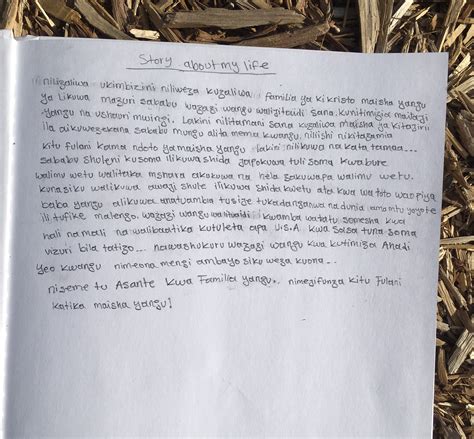 Story about my life
nilizaliwa ukimbizini niliweza kuzaliwa familia ya kikristo maisha yangu
ya likuwa mazuri sababu wazazi wangu walizitaidi sana kunitimizia maitaji
yangu na ushauri mwingi. Lakini nilitamani sana kuzaliwa maisha ya kitaziri
ila aikuwezekana sababu mungu alita mema kwangu, niliishi nikitazamia
kitu fulani kama ndoto ya maisha yangu lakini nilikuwa na kata tamaa...
sababu shuleni kusoma ilikuwa shida japokuwa tuli soma kwa bure
walimu wetu walitaka mshara aikokuwa na hela zakuwapa walimu wetu.
kuna siku walikuwa awaji shule ilikuwa shida kwetu ata kwa wa toto wapiya
baba yangu alikuwa anatuambia tusize tukadanganwa na dunia ama mtu yoyote
ili tufike malengo. wazazi wangu walibaidi kwamba watatu somesha kwa
hali na mali na walibaatika kutuleta apa U.S.A kwa sasa tuna soma
vizuri bila tatizo... nawashukuru wazazi wangu kwa kutimiza Ahadi
yeo kwangu nimeona mengi ambayo siku weza kuona...
niseme tu Asante kwa Familia yangu. nimejifunza kitu Fulani
katika maisha yangu!